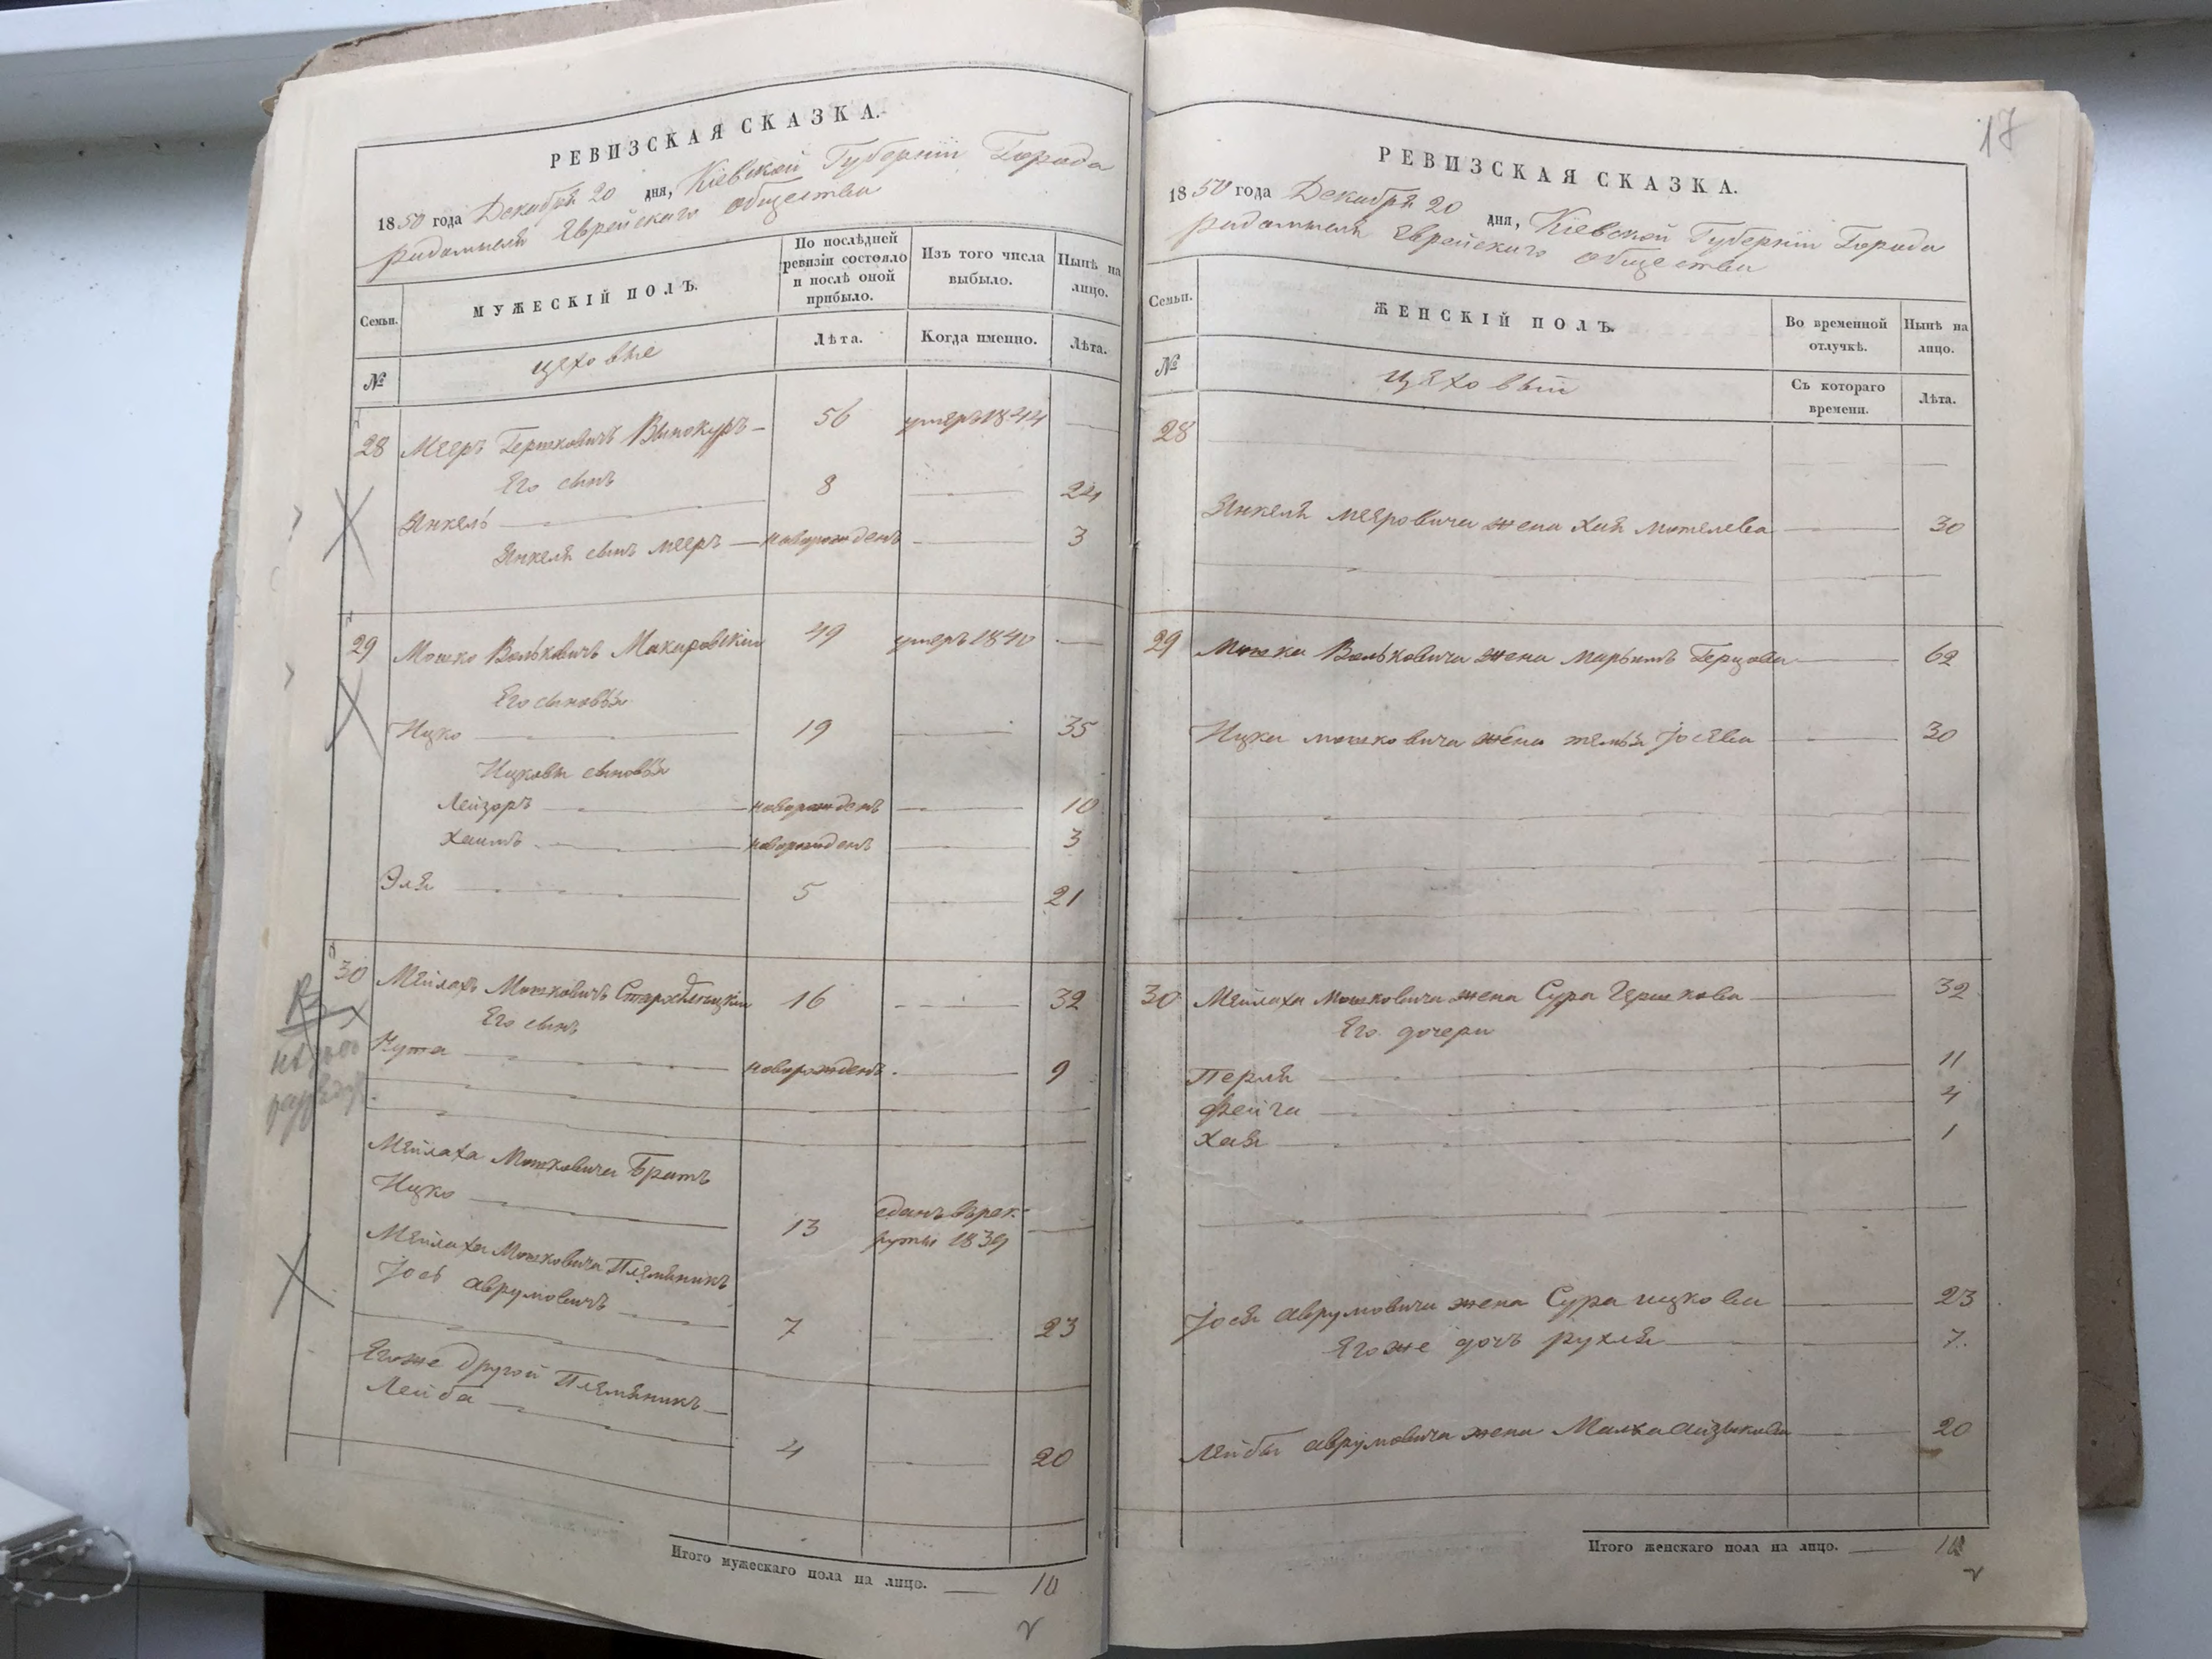 РЕВИЗСКАЯ СКАЗКА.
1850 года Декабря 20 дня, Кіевской Губерніи Города
Радомысля Еврейскаго общества
Семьи.
МУЖЕСКІЙ ПОЛЪ.
По послѣдней ревизіи состояло и послѣ оной прибыло.
Изъ того числа выбыло.
Нынѣ на лицо.
№
цеховые
Лѣта.
Когда именно.
Лѣта.
28 Мееръ Гершковичъ Винокуръ 56 умеръ 1844
Его сынъ
Янкель 8 24
Янкеля сынъ Мееръ новорожденъ 3
29 Мошко Волковичъ Макаровскій 49 умеръ 1840
Его сыновья
Ицко 19 35
Ицковы сыновья
Лейзоръ новорожденъ 10
Хаимъ новорожденъ 3
Эля 5 21
30 Мейлахъ Мошковичъ 16 32
Его сынъ
Нута новорожденъ 9
Мейлаха Мошковича Братъ
Ицко 13 сданъ в рек-
руты 1839
Мейлаха Мошковича Племяникъ
Іось Аврумовичъ 7 23
Его же другой Племяникъ
Лейба 4 20
Итого мужескаго пола на лицо. 10
17
РЕВИЗСКАЯ СКАЗКА.
1850 года Декабря 20 дня, Кіевской Губерніи Города
Радомысля Еврейскаго общества
Семьи.
ЖЕНСКІЙ ПОЛЪ.
Во временной отлучкѣ.
Нынѣ на лицо.
№
цеховый
Съ котораго времени.
Лѣта.
28
Янкеля Меровича жена Хая Мотелева 30
29 Мошка Волковича жена Марьямъ Герцова 62
Ицка Мошковича жена Іосева 30
30 Мейлаха Мошковича жена Сура Гершкова 32
Его дочери
Перля 11
Фейга 4
Хая 1
Іося Аврумовича жена Сура Ицкова 23
Его же дочь Рухля 7.
Лейбы Аврумовича жена Малка Айзыкова 20
Итого женскаго пола на лицо. 10